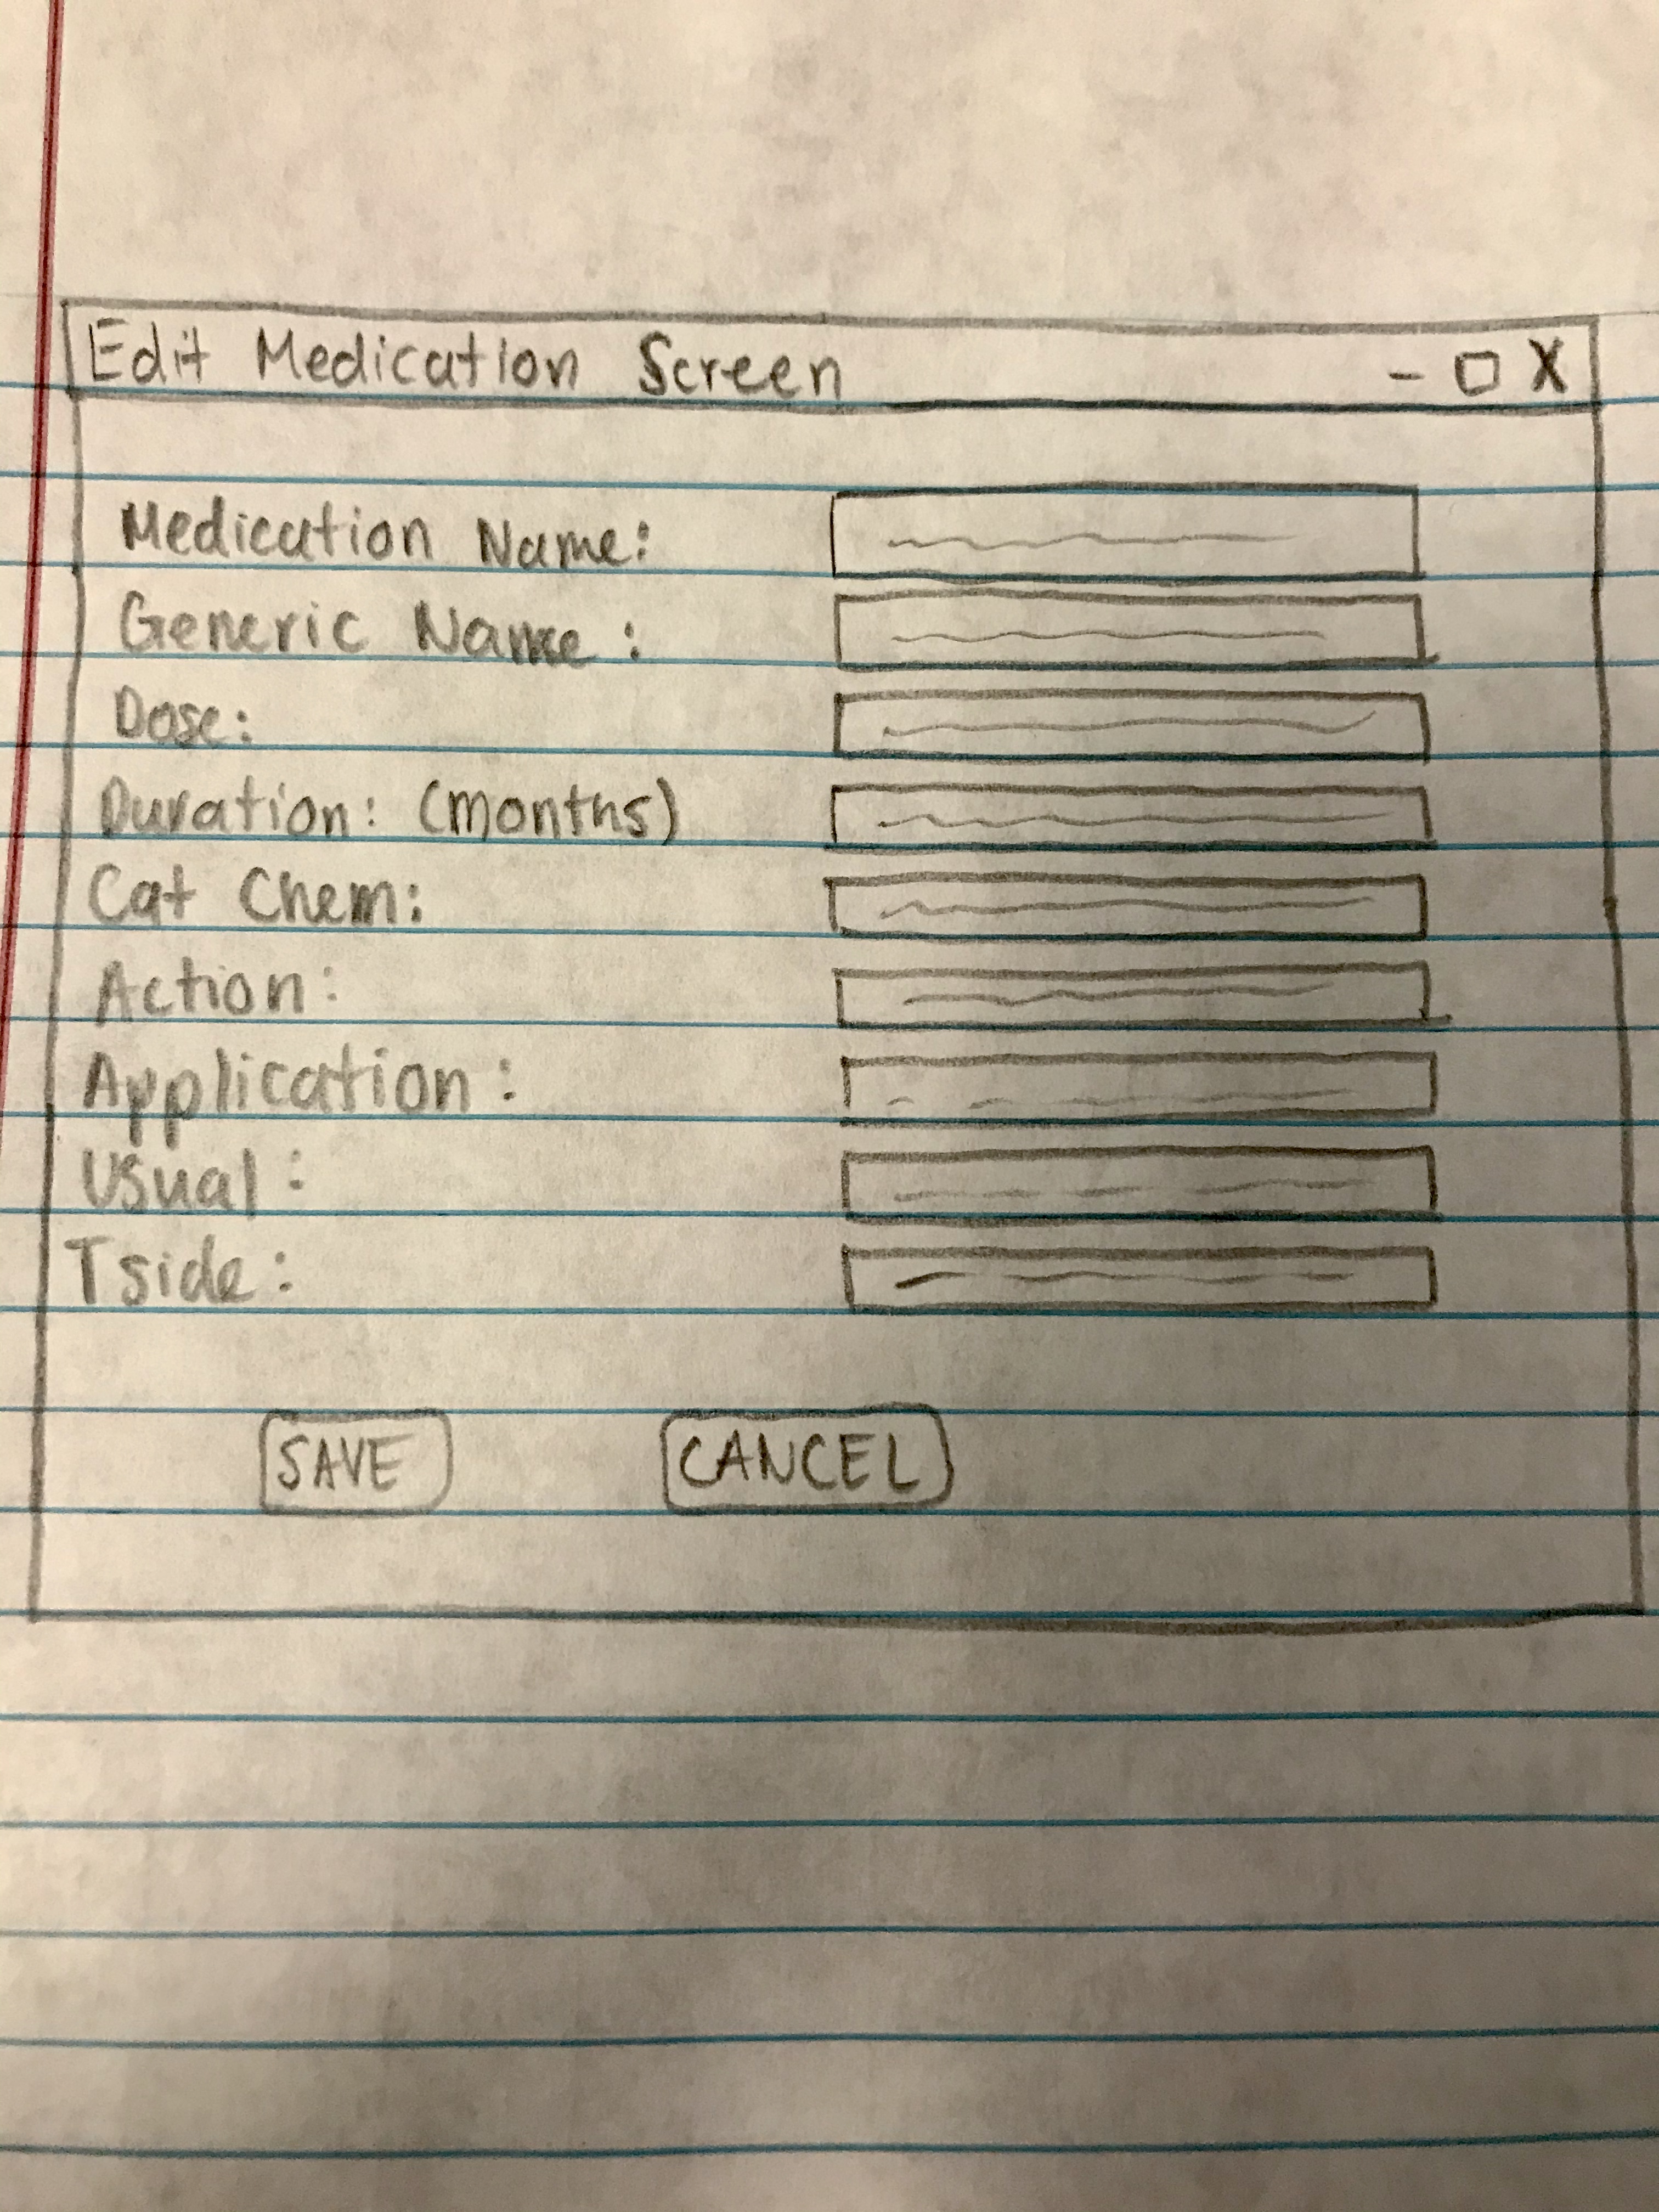 Edit Medication Screen - □ X
Medication Name:
Generic Name:
Dose:
Duration: (months)
Cat Chem:
Action:
Application:
Usual:
Tside:
SAVE CANCEL